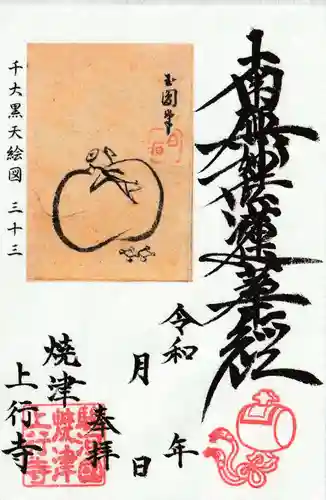 南無妙法蓮華経
玉圓筆
千大黒天絵図 三十三
令和 年
月 日
奉拝
焼津
上行寺
駿河國
焼津
上行寺